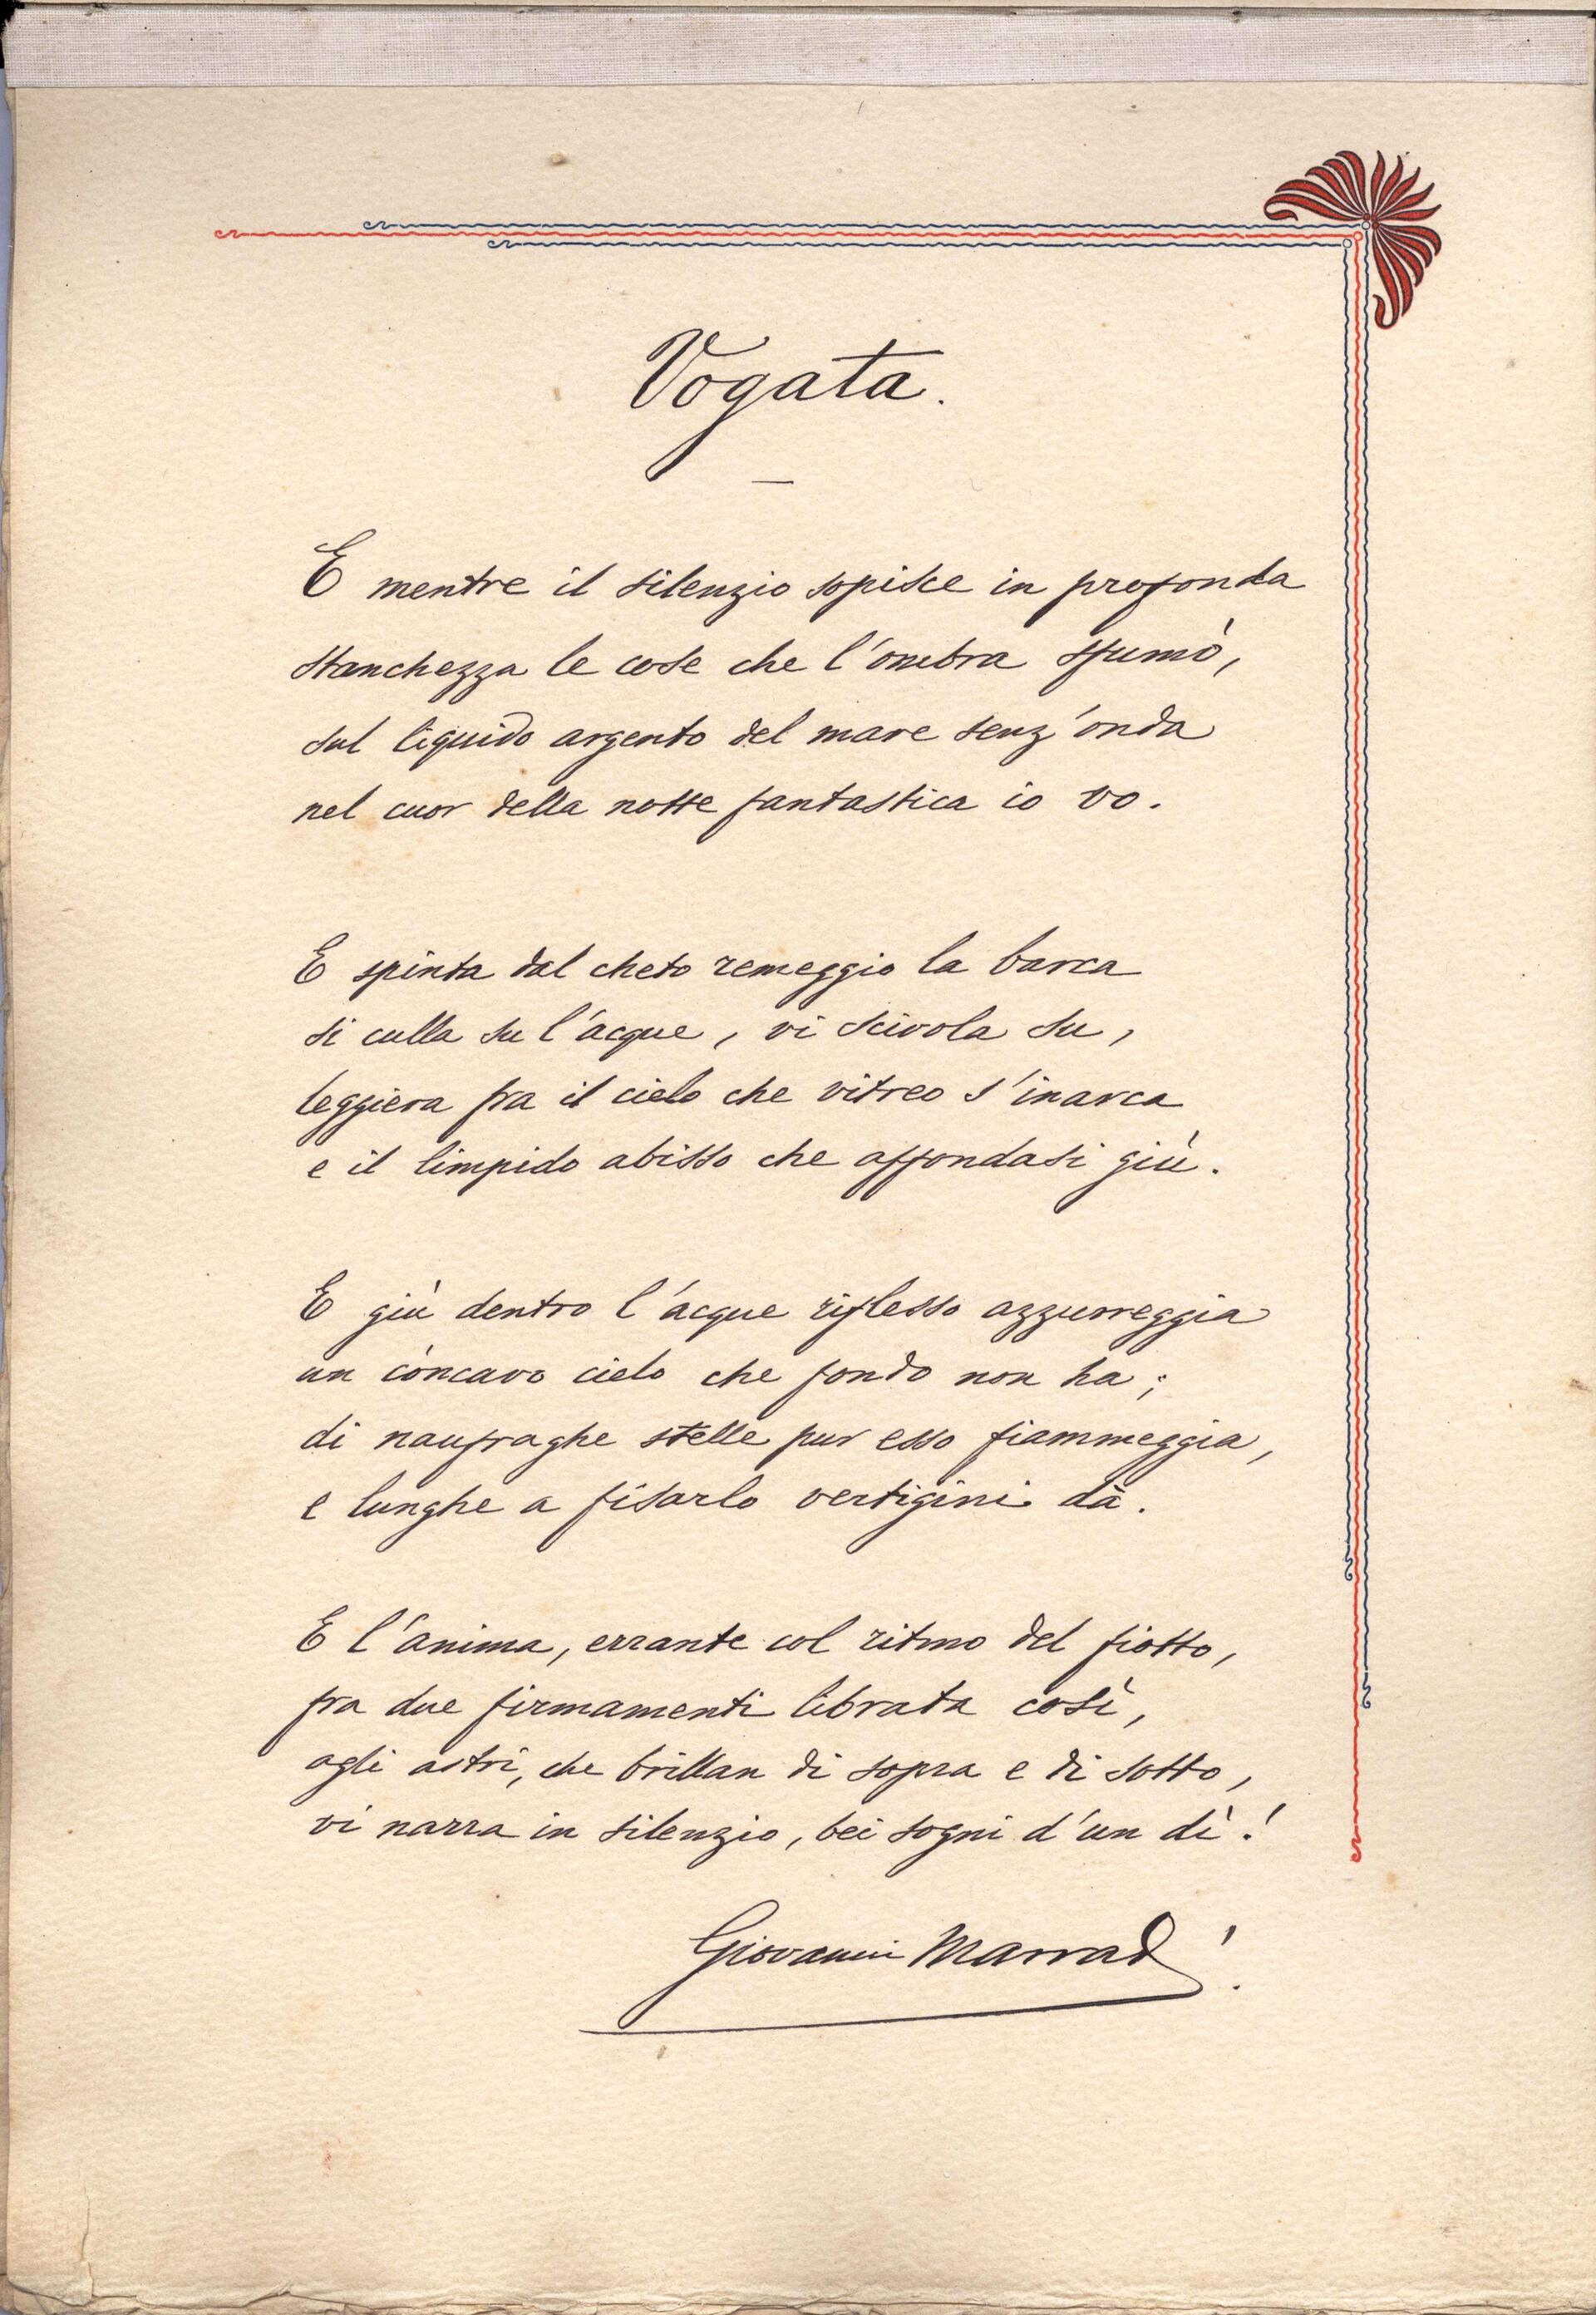 Vogata.
E mentre il silenzio sopisce in profonda
stanchezza le cose che l'ombra sfumò,
sul liquido argento del mare senz'onda
nel cuor della notte fantastica io vo.
E spinta dal cheto remeggio la barca
si culla su l'acque, vi scivola su,
leggiera fra il cielo che vitreo s'inarca
e il limpido abisso che affondasi giù.
E giù dentro l'acque riflesso azzurreggia
un còncavo cielo che fondo non ha;
di naufraghe stelle pur esso fiammeggia,
e lunghe a fisarlo vertigini dà.
E l'anima, errante col ritmo del fiotto,
fra due firmamenti librata così,
agli astri, che brillan di sopra e di sotto,
vi narra in silenzio, bei sogni d'un dì!
Giovanni Marradi.